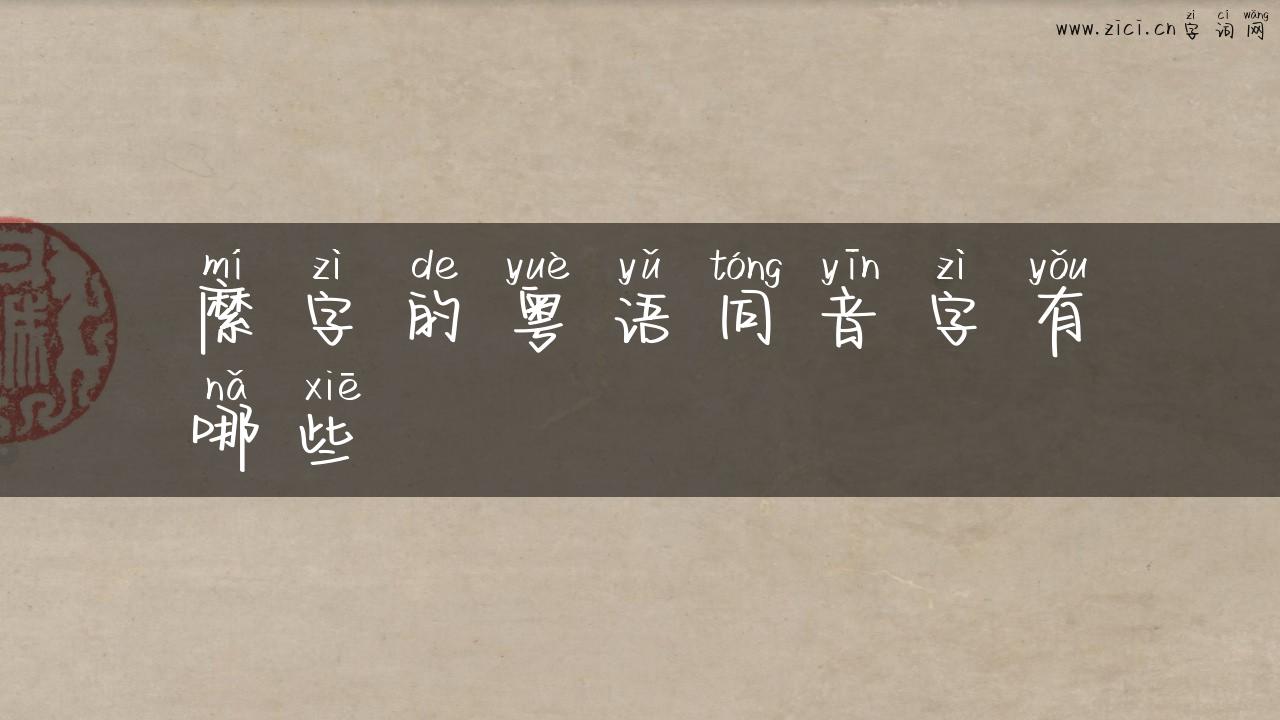 www.zici.cn 字词网
zì cí wǎng
mí zì de yuè yǔ tóng yīn zì yǒu
縻字的粤语同音字有
nǎ xiē
哪些